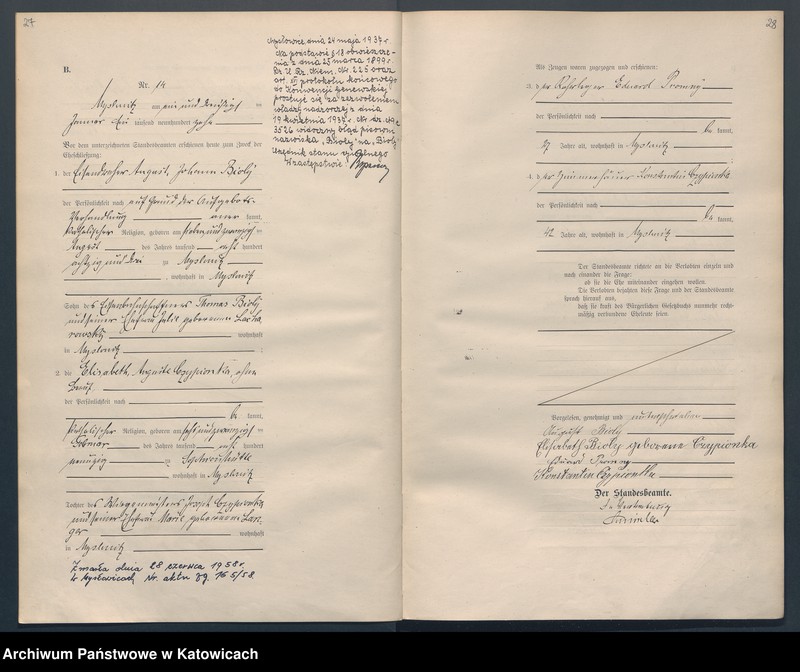 27
B.
Nr. 14
Myslowitz am ein und dreißigst en
Januar ein tausend neunhundert zehn
Vor dem unterzeichneten Standesbeamten erschienen heute zum Zweck der
Eheschließung:
1. der Eisendreher August Johann Bioly
der Persönlichkeit nach auf Grund der Aufgebots-
Verhandlung aner kannt,
katholischer Religion, geboren am siebenundzwanzigst en
August des Jahres tausend acht hundert
achtzig und drei zu Myslowitz
, wohnhaft in Myslowitz
Sohn des Eisenbahnschaffners Thomas Bioly
und seiner Ehefrau geborenen
wohnhaft
in Myslowitz ;
2. die Elisabeth, Auguste Czypionka, ohne
Beruf
der Persönlichkeit nach
be kannt,
katholischer Religion, geboren am sechsundzwanzigst en
Februar des Jahres tausend acht hundert
neunzig zu
, wohnhaft in Myslowitz
Tochter des Wiegemeisters Joseph Czypionka
und seiner Ehefrau Marie, geborenen Lan-
ger wohnhaft
in Myslowitz
Zmarła dnia 28 czerwca 1958 r.
w Mysłowicach Nr. aktu zg. 165/58.
Mysłowice dnia 24 maja 1937 r
Na podstawie § 18 obwieszcze-
nia z dnia 25 marca 1899 r.
Dz. U. Rz. Niem. str. 225 oraz
art. protokołu końcowego
do Konwencji Genewskiej
prostuje się za zezwoleniem
władzy nadzorczej z dnia
19 kwietnia 1937 r.
3526 widoczny błąd pisowni
nazwiska "Bioly" na "Bioły"
Urzędnik stanu cywilnego
W zastępstwie:
28
Als Zeugen waren zugezogen und erschienen:
3. der Rohrleger Eduard Promny
der Persönlichkeit nach
be kannt,
27 Jahre alt, wohnhaft in Myslowitz
;
4. der Zimmerhäuer Konstantin Czypionka
der Persönlichkeit nach
be kannt,
42 Jahre alt, wohnhaft in Myslowitz
Der Standesbeamte richtete an die Verlobten einzeln und
nach einander die Frage:
ob sie die Ehe miteinander eingehen wollen.
Die Verlobten bejahten diese Frage und der Standesbeamte
sprach hierauf aus,
daß sie kraft des Bürgerlichen Gesetzbuchs nunmehr recht-
mäßig verbundene Eheleute seien.
Vorgelesen, genehmigt und unterschrieben
August Bioly
Elisabeth Bioly geborene Czypionka
Eduard Promny
Konstantin Czypionka
Der Standesbeamte.
In Vertretung
Archiwum Państwowe w Katowicach